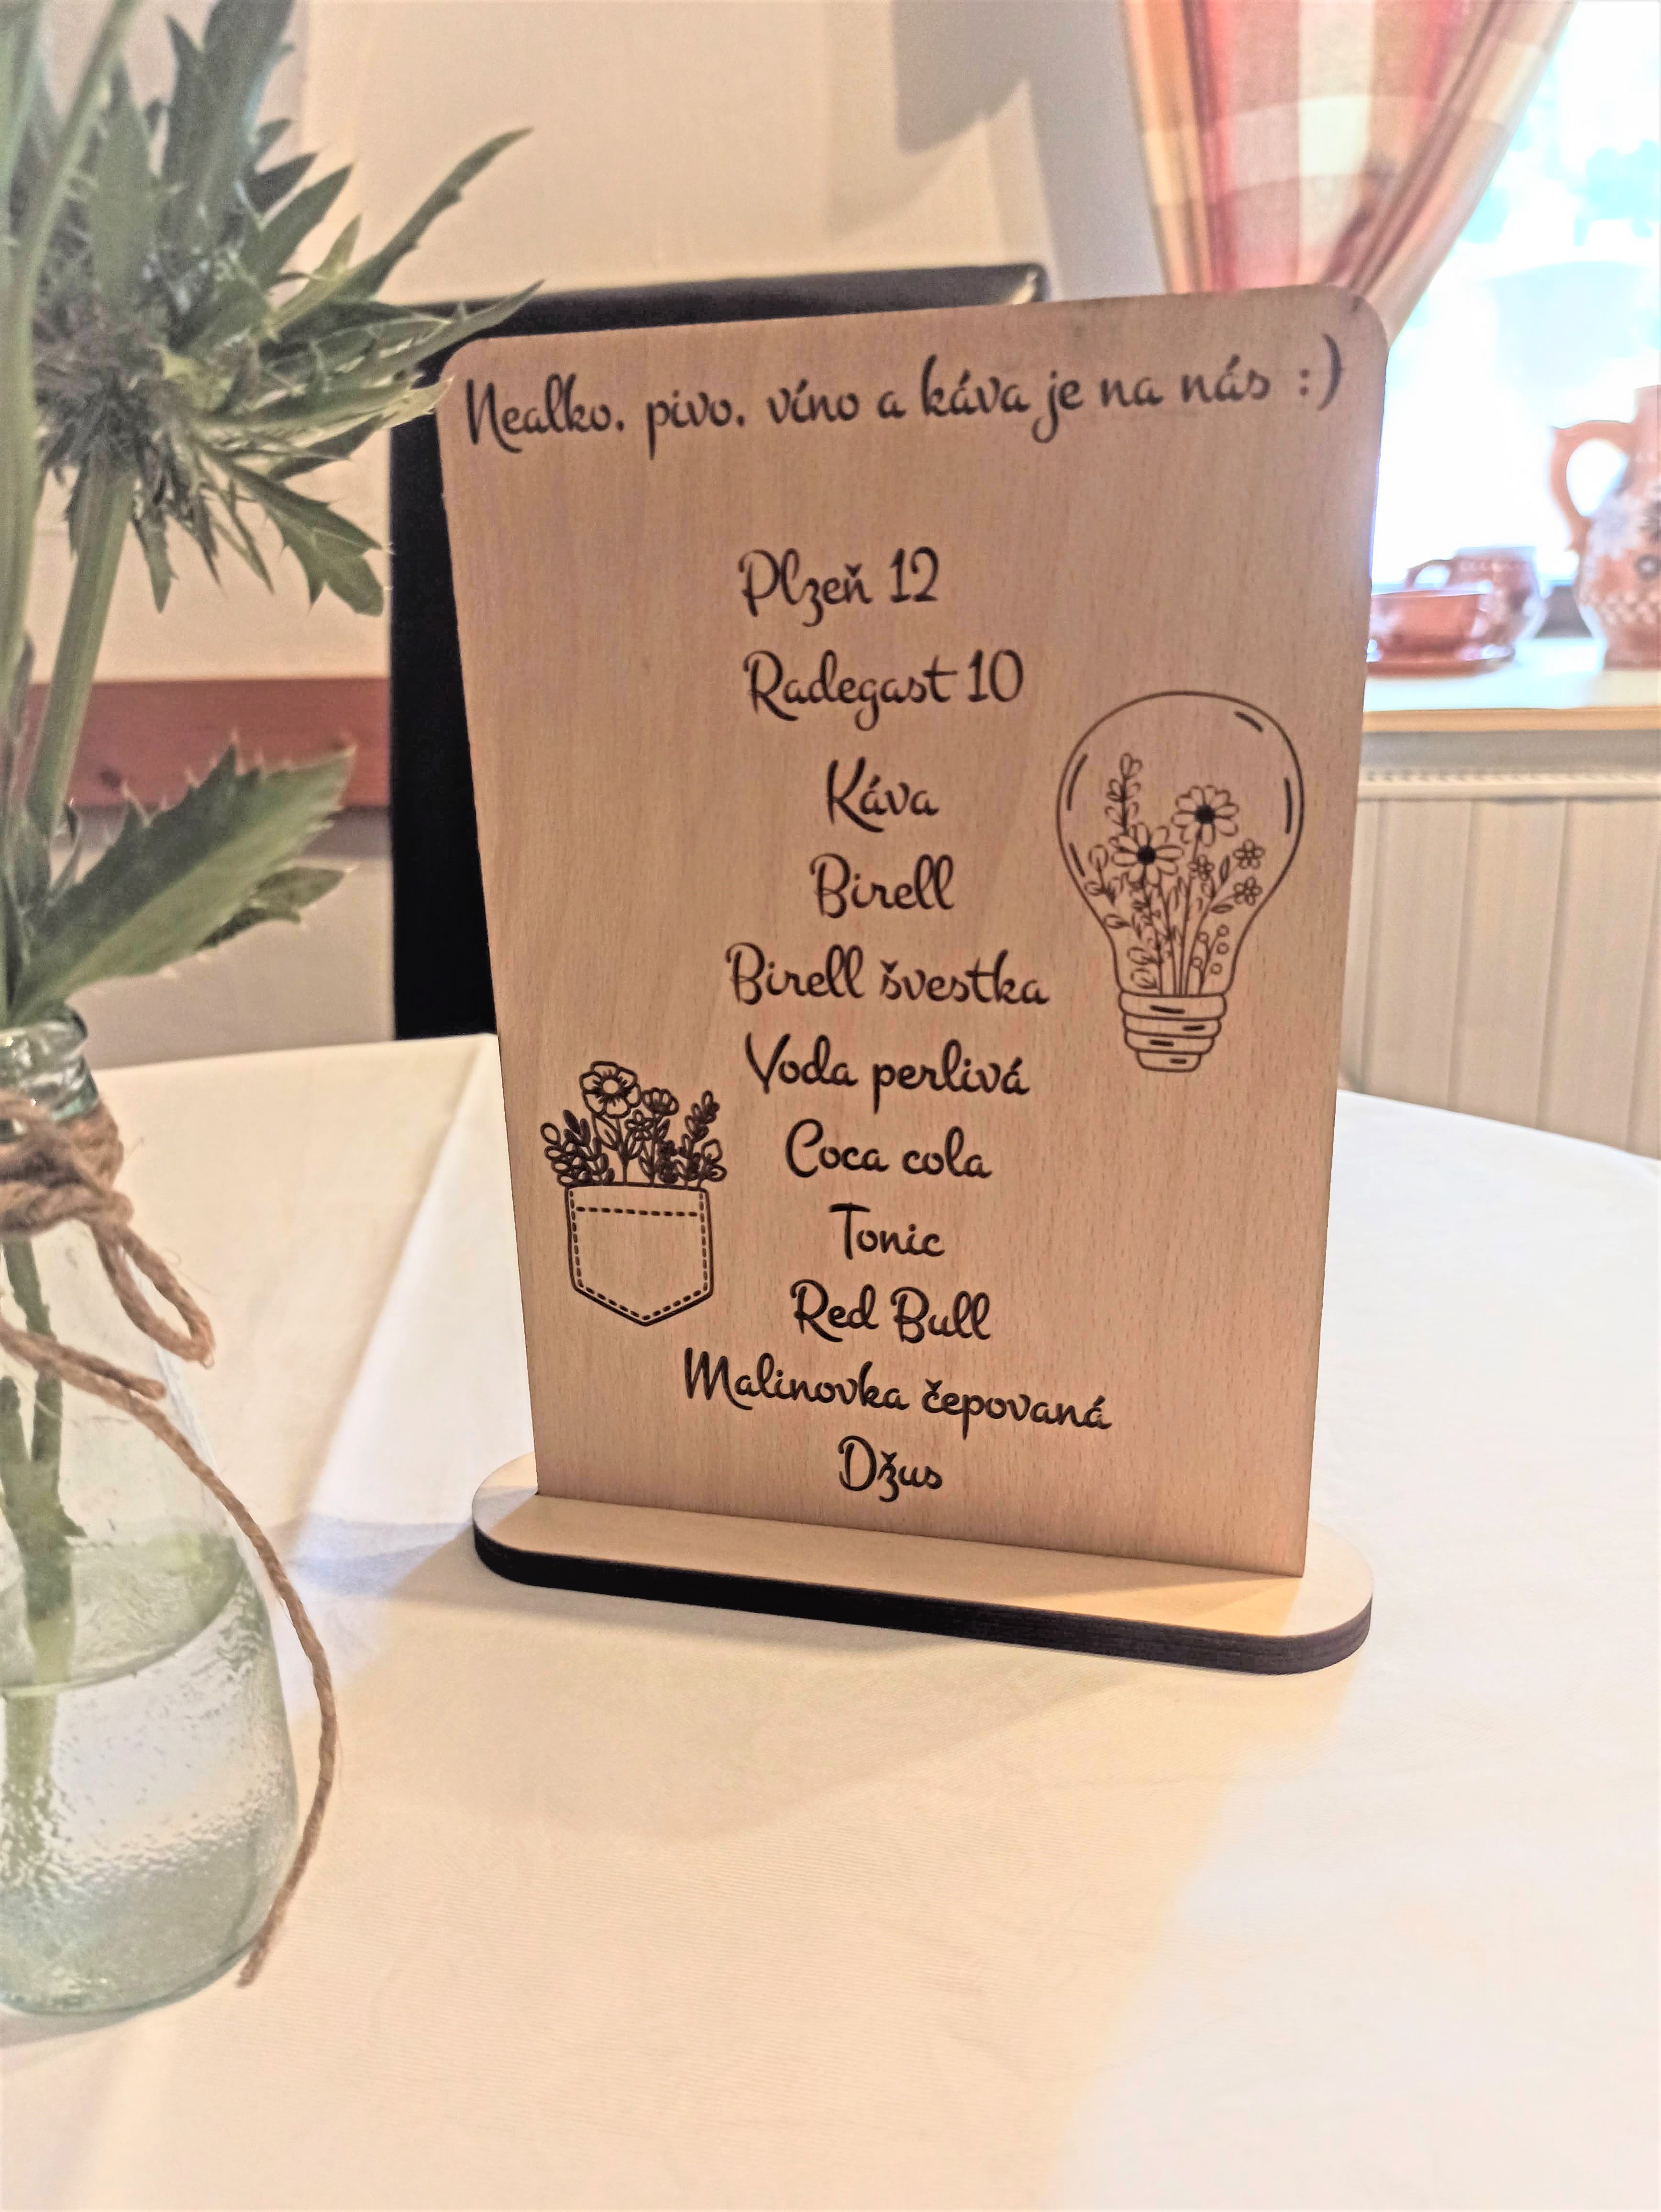 Nealko, pivo, víno a káva je na nás :)
Plzeň 12
Radegast 10
Káva
Birell
Birell švestka
Voda perlivá
Coca cola
Tonic
Red Bull
Malinovka čepovaná
Džus